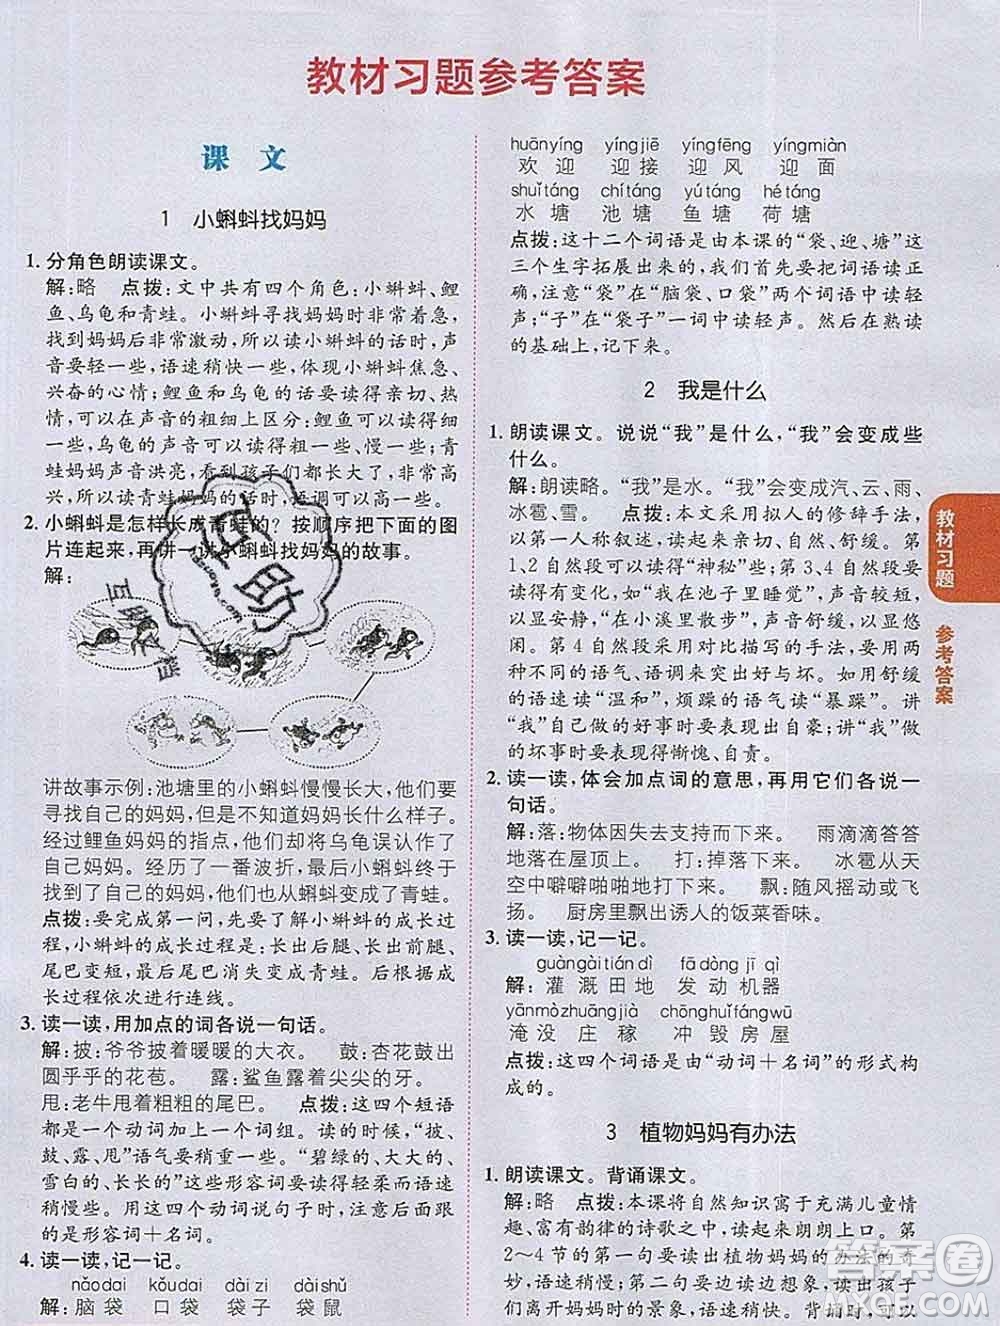 教材习题参考答案
课 文
1 小蝌蚪找妈妈
1. 分角色朗读课文。
解:略 点拨:文中共有四个角色:小蝌蚪、鲤
鱼、乌龟和青蛙。小蝌蚪寻找妈妈时非常着急,
找到妈妈后非常激动,所以读小蝌蚪的话时,声
音要轻一些,语速稍快一些,体现小蝌蚪焦急、
兴奋的心情;鲤鱼和乌龟的话要读得亲切、热
情,可以在声音的粗细上区分:鲤鱼可以读得细
一些,乌龟的声音可以读得粗一些、慢一些;青
蛙妈妈声音洪亮,看到孩子们都长大了,非常高
兴,所以读青蛙妈妈的话时,语调要高一些。
2. 小蝌蚪是怎样长成青蛙的?按顺序把下面的图
片连起来,再讲一讲小蝌蚪找妈妈的故事。
解:
讲故事示例:池塘里的小蝌蚪慢慢长大,他们要
寻找自己的妈妈,但是不知道妈妈长什么样子。
经过鲤鱼妈妈的指点,他们去却将乌龟误认作了
自己妈妈。经历了一番波折,最后小蝌蚪终于
找到了自己的妈妈,他们也从蝌蚪变成了青蛙。
点拨:要完成第一问,先要了解小蝌蚪的成长过
程,小蝌蚪的成长过程是:长出后腿、长出前腿、
尾巴变短、最后尾巴消失变成青蛙。然后,再根
据这个过程进行连线。
3. 读一读,用加点的词各说一句话。
解:披:爷爷披着暖暖的大衣。 鼓:杏花鼓出
圆乎乎的花苞。 露:鲨鱼露着尖尖的牙。
甩:老牛甩着粗粗的尾巴。 点拨:这四个短语
都由一个动词加上一个词组。读的时候,“披、
鼓、露、甩”语气要稍重一些。“碧绿的、大大的、
雪白的、长长的”这些形容词要读得轻柔语速稍
慢一些。用这四个动词说句子时,要注意后面跟
的是形容词+名词。
4. 读一读,记一记。
nǎodai kǒudai dàizi dàishǔ
解:脑袋 口袋 袋子 袋鼠
huānyíng yíngjiē yíngfēng yíngmiàn
欢迎 迎接 迎风 迎面
shuǐtáng chítáng yútáng hétáng
水塘 池塘 鱼塘 荷塘
点拨:这十二个词语是由本课的“袋、迎、塘”这
三个生字拓展出来的,我们首先要把词语读正
确,注意“袋”在“脑袋、口袋”两个词语中读轻
声;“子”在“袋子”一词中读轻声。然后在熟读
的基础上,记下来。
2 我是什么
1. 朗读课文。说说“我”是什么,“我”会变成些
什么。
解:朗读略。“我”是水。“我”会变成汽、云、雨、
冰雹、雪。 点拨:本文采用拟人的修辞手法,
以第一人称叙述,读起来亲切、自然、舒缓。第
1、2自然段要读出“神秘”一些;第3、4自然段要
读得有变化,如“我在池子里睡觉”,声音较短,
以显安静,“在小溪里散步”,声音舒缓,以显悠
闲。第4自然段采用对比描写的手法,要有两
种不同的语气、语调来突出好与坏。如用舒缓
的语速读“温和”,烦躁的语气读“暴躁”。讲
“我”自己做的好事时要读出自豪;讲“我”做
的坏事时要读得惭愧、自责。
2. 读一读,体会加点词的意思,再用它们各说一
句话。
解:落:物体因失去支持而下来。 雨滴滴答答
地落在屋顶上。 打:掉落下来。 冰雹从天
空中噼噼啪啪地打下来。 飘:随风摇动或飞
扬。 厨房里飘出诱人的饭菜香味。
3. 读一读,记一记。
guàngàitiándì fādòngjīqì
解:灌溉田地 发动机器
yānmòzhuāngjià chōnghuǐfángwū
淹没庄稼 冲毁房屋
点拨:这四个词语是由“动词+名词”的形式构
成的。
3 植物妈妈有办法
1. 朗读课文。背诵课文。
解:略 点拨:本课将自然知识寓于充满儿童情
趣、富有韵律的诗歌之中,读起来朗朗上口。第
2~4节的第一句要读出植物妈妈的办法的奇
妙,语速稍慢;第二句要读边想象,读出孩子们
离开妈妈时的景象,语速稍快。背诵时,可以
教材习题
参考答案
互助文档
答案圈
MXQE.COM